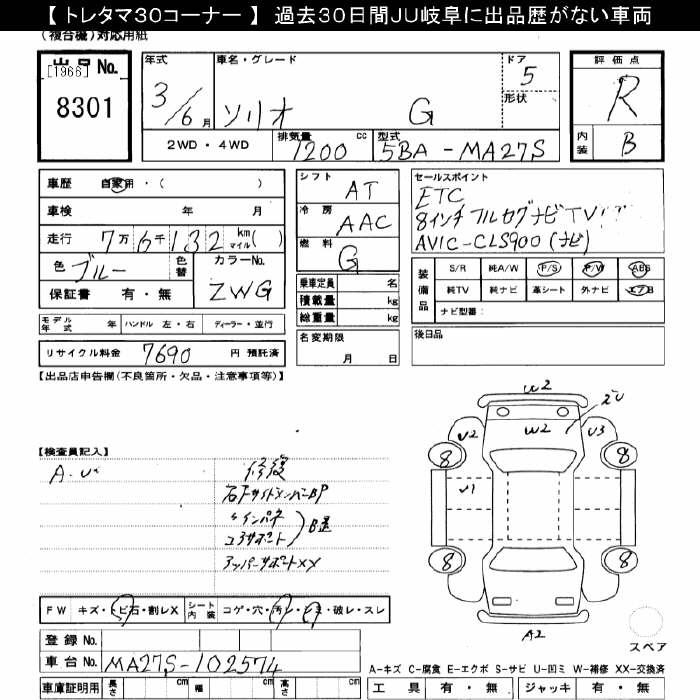 【トレタマ30コーナー】 過去30日間JU岐阜に出品歴がない車両
(複合機)対応用紙
出品No.
[1966]
8301
年式
3/6月
車名・グレード
ソリオ G
ドア
5
形状
評価点
R
内装
B
2WD・4WD
排気量
1200 cc
型式
5BA-MA27S
車歴 自家用・( )
車検 年 月
走行 7万6千132 km マイル( )
色 ブルー
色替
カラーNo.
ZWG
保証書 有・無
シフト AT
冷房 AAC
燃料 G
セールスポイント
ETC
8インチフルセグナビTV
AVIC-CLS900(ナビ)
乗車定員 名
積載量 kg
総重量 kg
名変期限
月 日
装備品
S/R 純A/W P/S P/W ABS
純TV 純ナビ 革シート 外ナビ エアB
ナビ型番:
後日品
モデル年式 年 ハンドル 左・右 ディーラー・並行
リサイクル料金 7690 円 預託済
【出品店申告欄(不良箇所・欠品・注意事項等)】
【検査員記入】
A・U
修復
右Fサイドメンバー
インパネ
コアサポート
アッパーサポートXX
U2
W2
U2
U3
U1
8
8
8
8
A2
スペア
FW キズ・トビ石・割レX シート内装 コゲ・穴・汚レ・シミ・破レ・スレ
登録No.
車台No. MA27S-102574
車庫証明用 長さ cm 幅 cm 高さ cm
A-キズ C-腐食 E-エクボ S-サビ U-凹ミ W-補修 XX-交換済
工具 有・無 ジャッキ 有・無